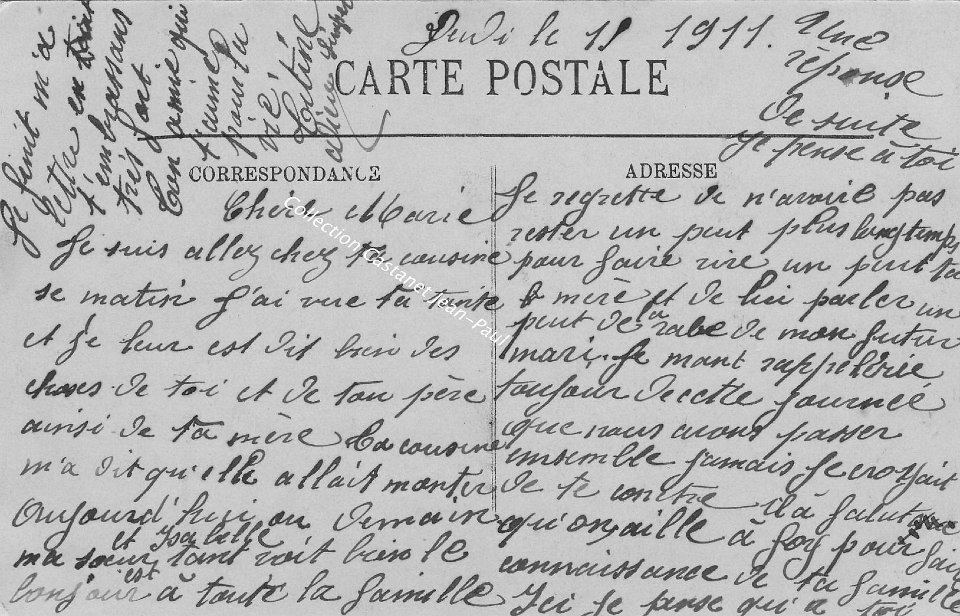 Jeudi le 18 1911.
Une
réponse
de suite
je pense à toi
CARTE POSTALE
CORRESPONDANCE
ADRESSE
Cherie Marie
Je suis allez chez ta cousine
se matin J'ai vue ta tante
et Je leur est dit bien des
choses de toi et de ton père
ainsi de ta mère ta cousine
m'a dit qu'elle allait monter
aujourd'hui ou demain
et Isabelle
ma sœur tant voit bien le
bonjour est à toute la famille
Je regrette de n'avoir pas
rester un peut plus longtemps
pour faire rire un peut ta
mère et de lui parler un
peut de la robe de mon futur
mari. Je mant rappelerie
toujour de cette journeé
que nous avons passer
ensemble jamais Je croyait
de te contre il à falut
qu'on aille à Foy pour fair
connaissance de ta famille
Ici je pense qu'à toi
Je finit m'a
lettre en
t'embrassans
très fort
ton amie qui
t'aime
pour la
vie
Collection Castanet Jean-Paul